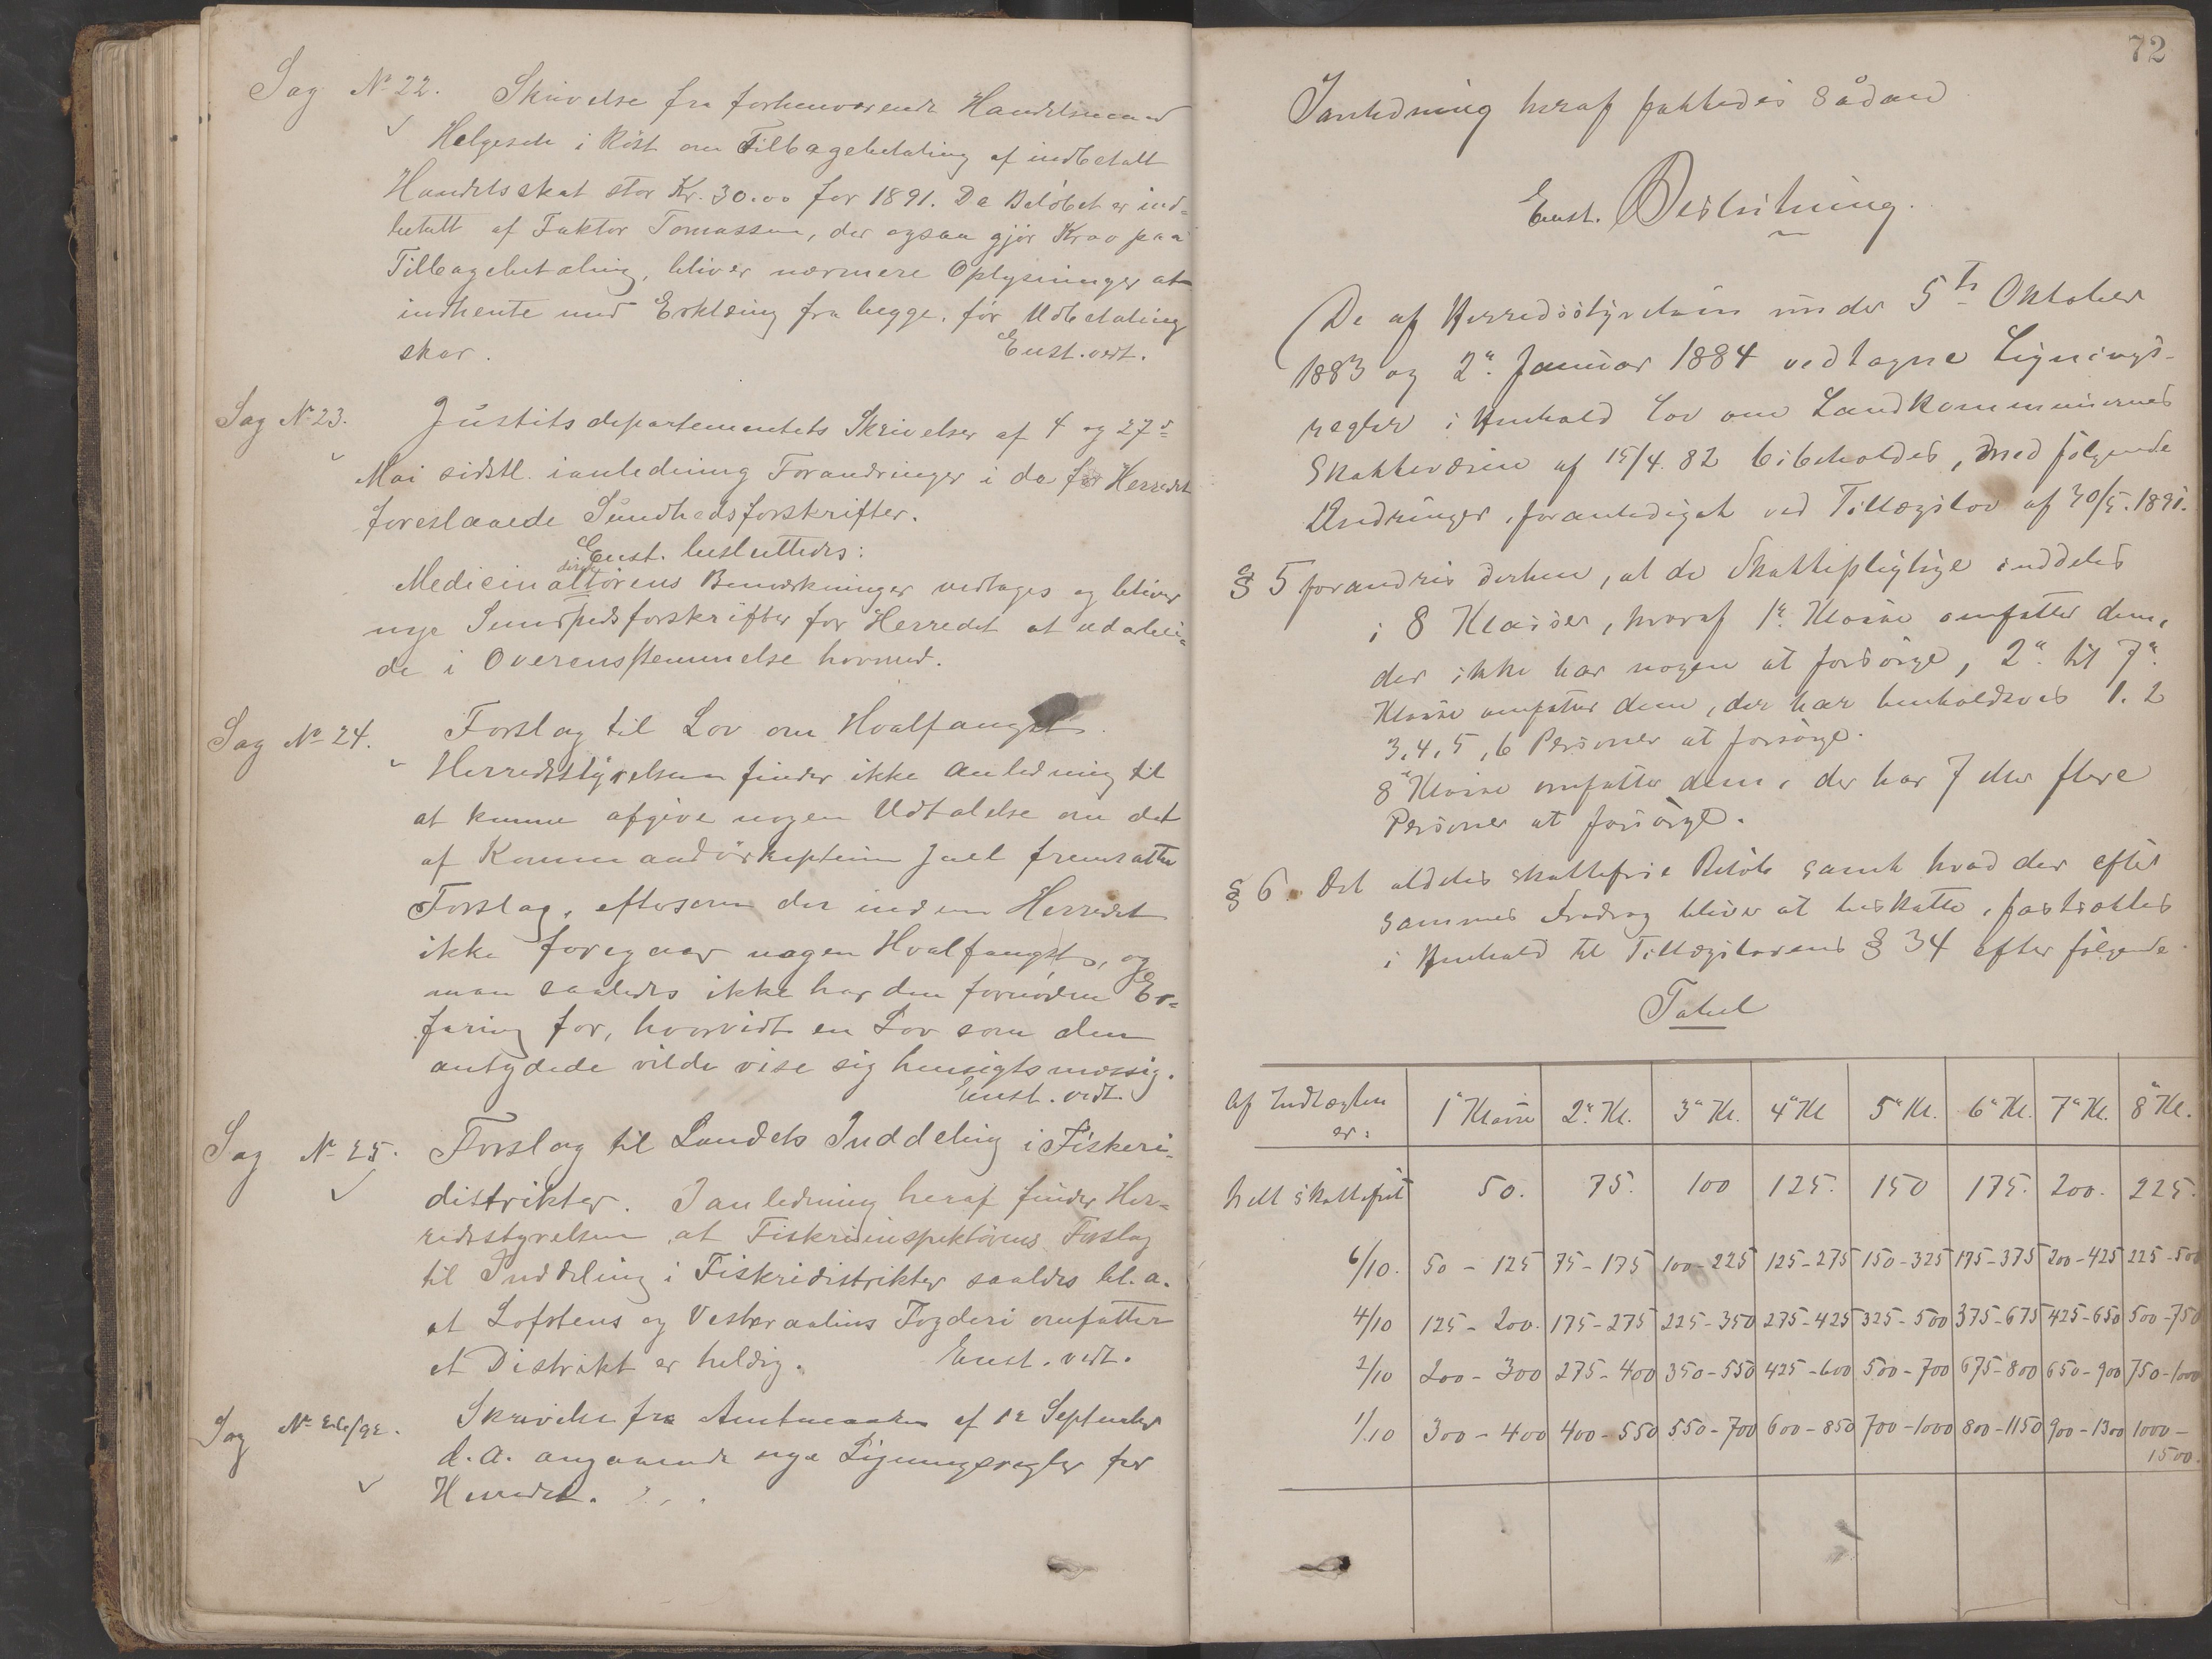 Sag No 22. Skrivelse fra forhenværende Handelsmand
Helgesen i Röst om Tilbagebetaling af indbetalt
Handelsskat stor Kr. 30.00 for 1891. Da Belöbet er ind-
betalt af Faktor Tomassen, der ogsaa gjör Krav paa
Tilbagebetaling, bliver nærmere Oplysninger at
indhente med Erklæring fra begge, för Udbetaling
sker. Enst. vedt.
Sag No 23. Justitsdepartementets Skrivelser af 4 og 27de
Mai sidstl. ianledning Forandringer i de for Herredet
foreslaaede Sundhedsforskrifter.
Enst. besluttedes:
Medicinaldirektörens Bemærkninger vedtages og bliver
nye Sundhedsforskrifter for Herredet at udarbei-
de i Overensstemmelse hermed.
Sag No 24. Forslag til Lov om Hvalfangst.
Herredsstyrelsen finder ikke Anledning til
at kunne afgive nogen Udtalelse om det
af Kommandörkaptein Juel fremsatte
Forslag, eftersom der inden Herredet
ikke foregaar nogen Hvalfangst, og
man saaledes ikke har den fornödne Er-
faring for, hvorvidt en Lov som den
antydede vilde vise sig hensigtsmæssig.
Enst. vedt.
Sag No 25. Forslag til Landets Inddeling i Fiskeri-
distrikter. I anledning heraf finder Her-
redsstyrelsen at Fiskeriinspektörens Forslag
til Inddeling i Fiskeridistrikter saaledes bl.a.
at Lofotens og Vesteraalens Fogderi omfatter
et Distrikt er heldig. Enst. vedt.
Sag No 26/92. Skrivelse fra Amtmanden af 12 September
d.A. angaaende nye Ligningsregler for
Herredet.
72
Ianledning heraf fattedes sådan
Enst. Beslutning.
De af Herredsstyrelsen under 5te Oktober
1883 og 2n. Januar 1884 vedtagne Lignings-
regler i Henhold Lov om Landkommunernes
Skattevæsen af 15/4.82 bibeholdes, med følgende
Ændringer, foranlediget ved Tillægslov af 30/5.1891.
§ 5 forandres derhen, at de Skattepligtige inddeles
i 8 Klasser, hvoraf 1e. Klasse omfatter dem,
der ikke har nogen at forsörge, 2n. til 7n.
Klasse omfatter dem, der har henholdsvis 1. 2
3, 4, 5, 6 Personer at forsörge.
8n Klasse omfatter dem, der har 7 eller flere
Personer at forsörge.
§ 6. Det aldeles skattefrie Belöb samt hvad der efter
sammes Fradrag bliver at beskatte, fastsættes
i Henhold til Tillægslovens § 34 efter fölgende
Tabel
Af Indtægten er: 1n Klasse 2n. Kl. 3n Kl. 4n Kl 5n Kl. 6n Kl. 7n Kl. 8n Kl.
helt skattefrit 50. 75. 100 125. 150 175. 200. 225.
6/10. 50 - 125 75 - 175 100 - 225 125 - 275 150 - 325 175 - 375 200 - 425 225 - 500
4/10 125 - 200. 175 - 275 225 - 350 275 - 425 325 - 500 375 - 675 425 - 650 500 - 750
2/10 200 - 300 275 - 400 350 - 550 425 - 600 500 - 700 675 - 800 650 - 900 750 - 1000
1/10 300 - 400 400 - 550 550 - 700 600 - 850 700 - 1000 800 - 1150 900 - 1300 1000 -
1500.